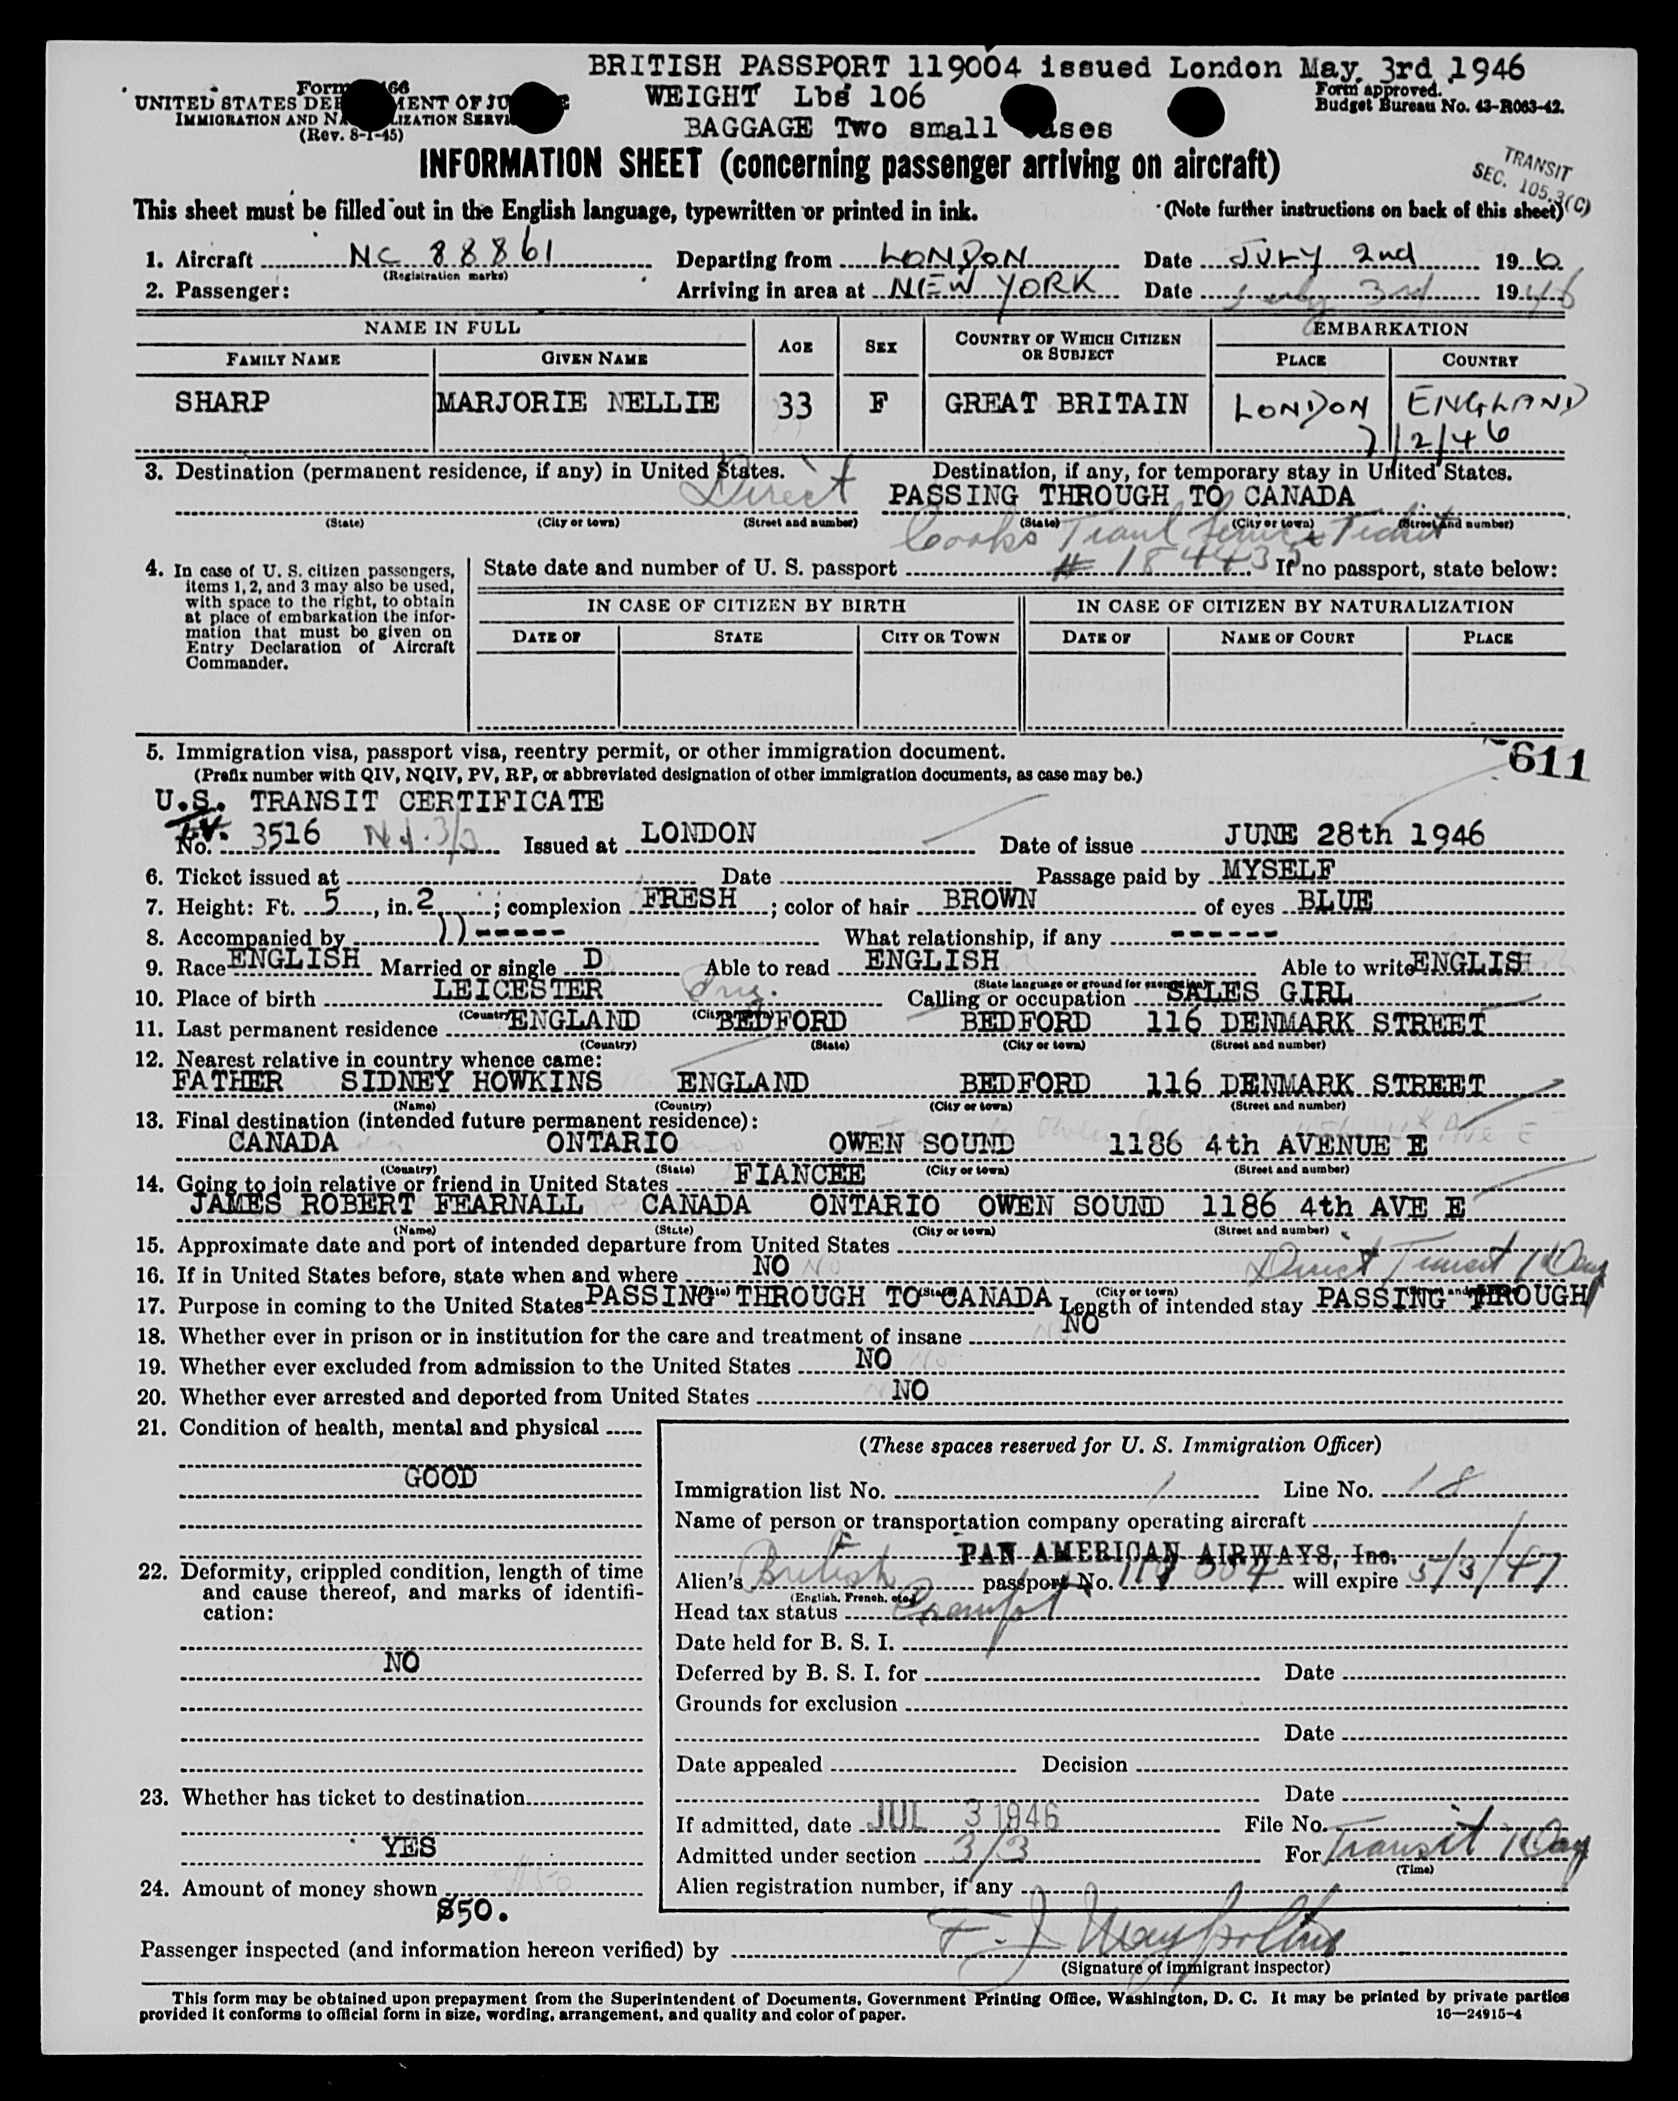 BRITISH PASSPORT 119004 issued London May 3rd 1946
Form 66
UNITED STATES DEP MENT OF JU E
WEIGHT Lbs 106
Form approved.
Budget Bureau No. 43-R063-42.
IMMIGRATION AND NA LIZATION SERVI
(Rev. 8-1-45)
BAGGAGE Two small ases
INFORMATION SHEET (concerning passenger arriving on aircraft)
TRANSIT
SEC. 105.3(C)
This sheet must be filled out in the English language, typewritten or printed in ink.
(Note further instructions on back of this sheet)
1. Aircraft NC 88861 Departing from LONDON Date JULY 2nd 19 6
(Registration marks)
2. Passenger: Arriving in area at NEW YORK Date July 3rd 1946
NAME IN FULL AGE SEX COUNTRY OF WHICH CITIZEN OR SUBJECT EMBARKATION
FAMILY NAME GIVEN NAME PLACE COUNTRY
SHARP MARJORIE NELLIE 33 F GREAT BRITAIN LONDON ENGLAND
7/2/46
3. Destination (permanent residence, if any) in United States. Destination, if any, for temporary stay in United States.
Direct PASSING THROUGH TO CANADA
(State) (City or town) (Street and number) (State) (City or town) (Street and number)
Cooks Travl Service Ticket
# 184435
4. In case of U. S. citizen passengers, items 1, 2, and 3 may also be used, with space to the right, to obtain at place of embarkation the information that must be given on Entry Declaration of Aircraft Commander.
State date and number of U. S. passport If no passport, state below:
IN CASE OF CITIZEN BY BIRTH IN CASE OF CITIZEN BY NATURALIZATION
DATE OF STATE CITY OR TOWN DATE OF NAME OF COURT PLACE
5. Immigration visa, passport visa, reentry permit, or other immigration document.
611
(Prefix number with QIV, NQIV, PV, RP, or abbreviated designation of other immigration documents, as case may be.)
U.S. TRANSIT CERTIFICATE
No. 3516 Issued at LONDON Date of issue JUNE 28th 1946
6. Ticket issued at Date Passage paid by MYSELF
7. Height: Ft. 5, in. 2; complexion FRESH; color of hair BROWN of eyes BLUE
8. Accompanied by ------ What relationship, if any ------
9. Race ENGLISH Married or single D Able to read ENGLISH Able to write ENGLISH
(State language or ground for exemption)
10. Place of birth LEICESTER Eng. Calling or occupation SALES GIRL
(Country) (City or town)
11. Last permanent residence ENGLAND BEDFORD BEDFORD 116 DENMARK STREET
(Country) (State) (City or town) (Street and number)
12. Nearest relative in country whence came:
FATHER SIDNEY HOWKINS ENGLAND BEDFORD 116 DENMARK STREET
(Name) (Country) (City or town) (Street and number)
13. Final destination (intended future permanent residence):
CANADA ONTARIO OWEN SOUND 1186 4th AVENUE E
(Country) (State) (City or town) (Street and number)
14. Going to join relative or friend in United States FIANCEE
JAMES ROBERT FEARNALL CANADA ONTARIO OWEN SOUND 1186 4th AVE E
(Name) (State) (City or town) (Street and number)
15. Approximate date and port of intended departure from United States
16. If in United States before, state when and where NO No Direct Transit 1 Day
(State) (City or town) (Street and number)
17. Purpose in coming to the United States PASSING THROUGH TO CANADA Length of intended stay PASSING THROUGH
18. Whether ever in prison or in institution for the care and treatment of insane NO
19. Whether ever excluded from admission to the United States NO No
20. Whether ever arrested and deported from United States NO
21. Condition of health, mental and physical
GOOD
22. Deformity, crippled condition, length of time and cause thereof, and marks of identification:
NO
23. Whether has ticket to destination
YES
24. Amount of money shown $50
$50.
(These spaces reserved for U. S. Immigration Officer)
Immigration list No. 1 Line No. 18
Name of person or transportation company operating aircraft
PAN AMERICAN AIRWAYS, Inc.
Alien's British passport No. 119 004 will expire 5/3/47
(English, French, etc.)
Head tax status Exempt
Date held for B. S. I.
Deferred by B. S. I. for Date
Grounds for exclusion
Date
Date appealed Decision
Date
If admitted, date JUL 3 1946 File No.
Admitted under section 3/3 For Transit 1 Day
(Time)
Alien registration number, if any
Passenger inspected (and information hereon verified) by
(Signature of immigrant inspector)
This form may be obtained upon prepayment from the Superintendent of Documents, Government Printing Office, Washington, D. C. It may be printed by private parties
provided it conforms to official form in size, wording, arrangement, and quality and color of paper. 16—24915-4